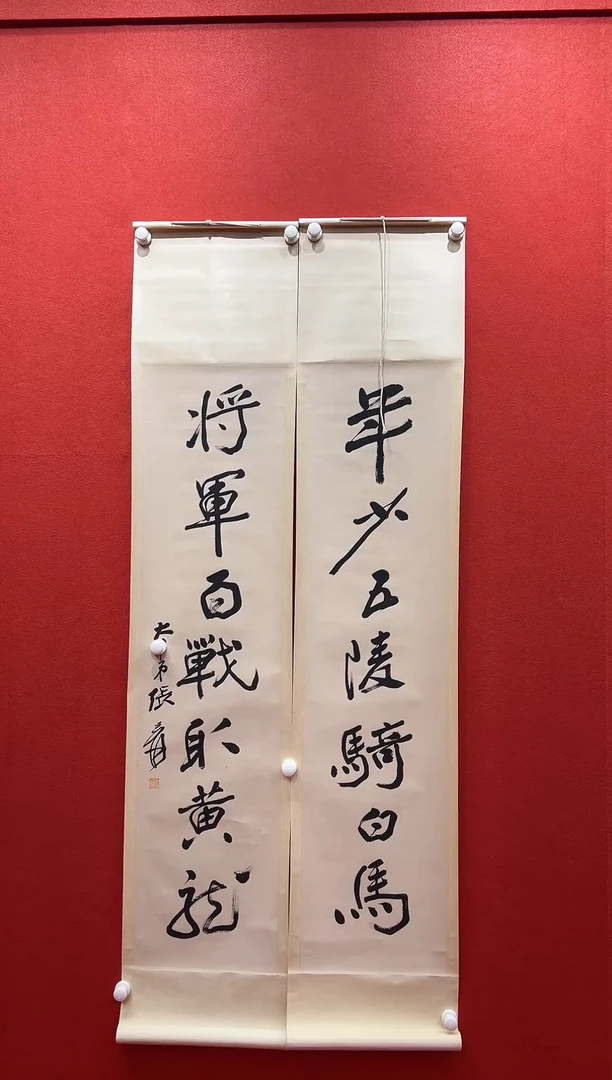 年少五陵騎白馬
將軍百戰取黃龍
大
弟張爰